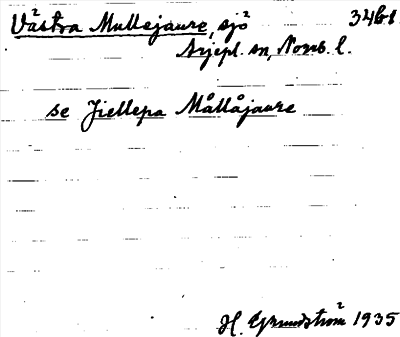 Västra Mullejaure, sjö 32G1
Arjepl. sn, Norrb. l.
se Jiellepa Mållåjaure
H. Grundström 1935